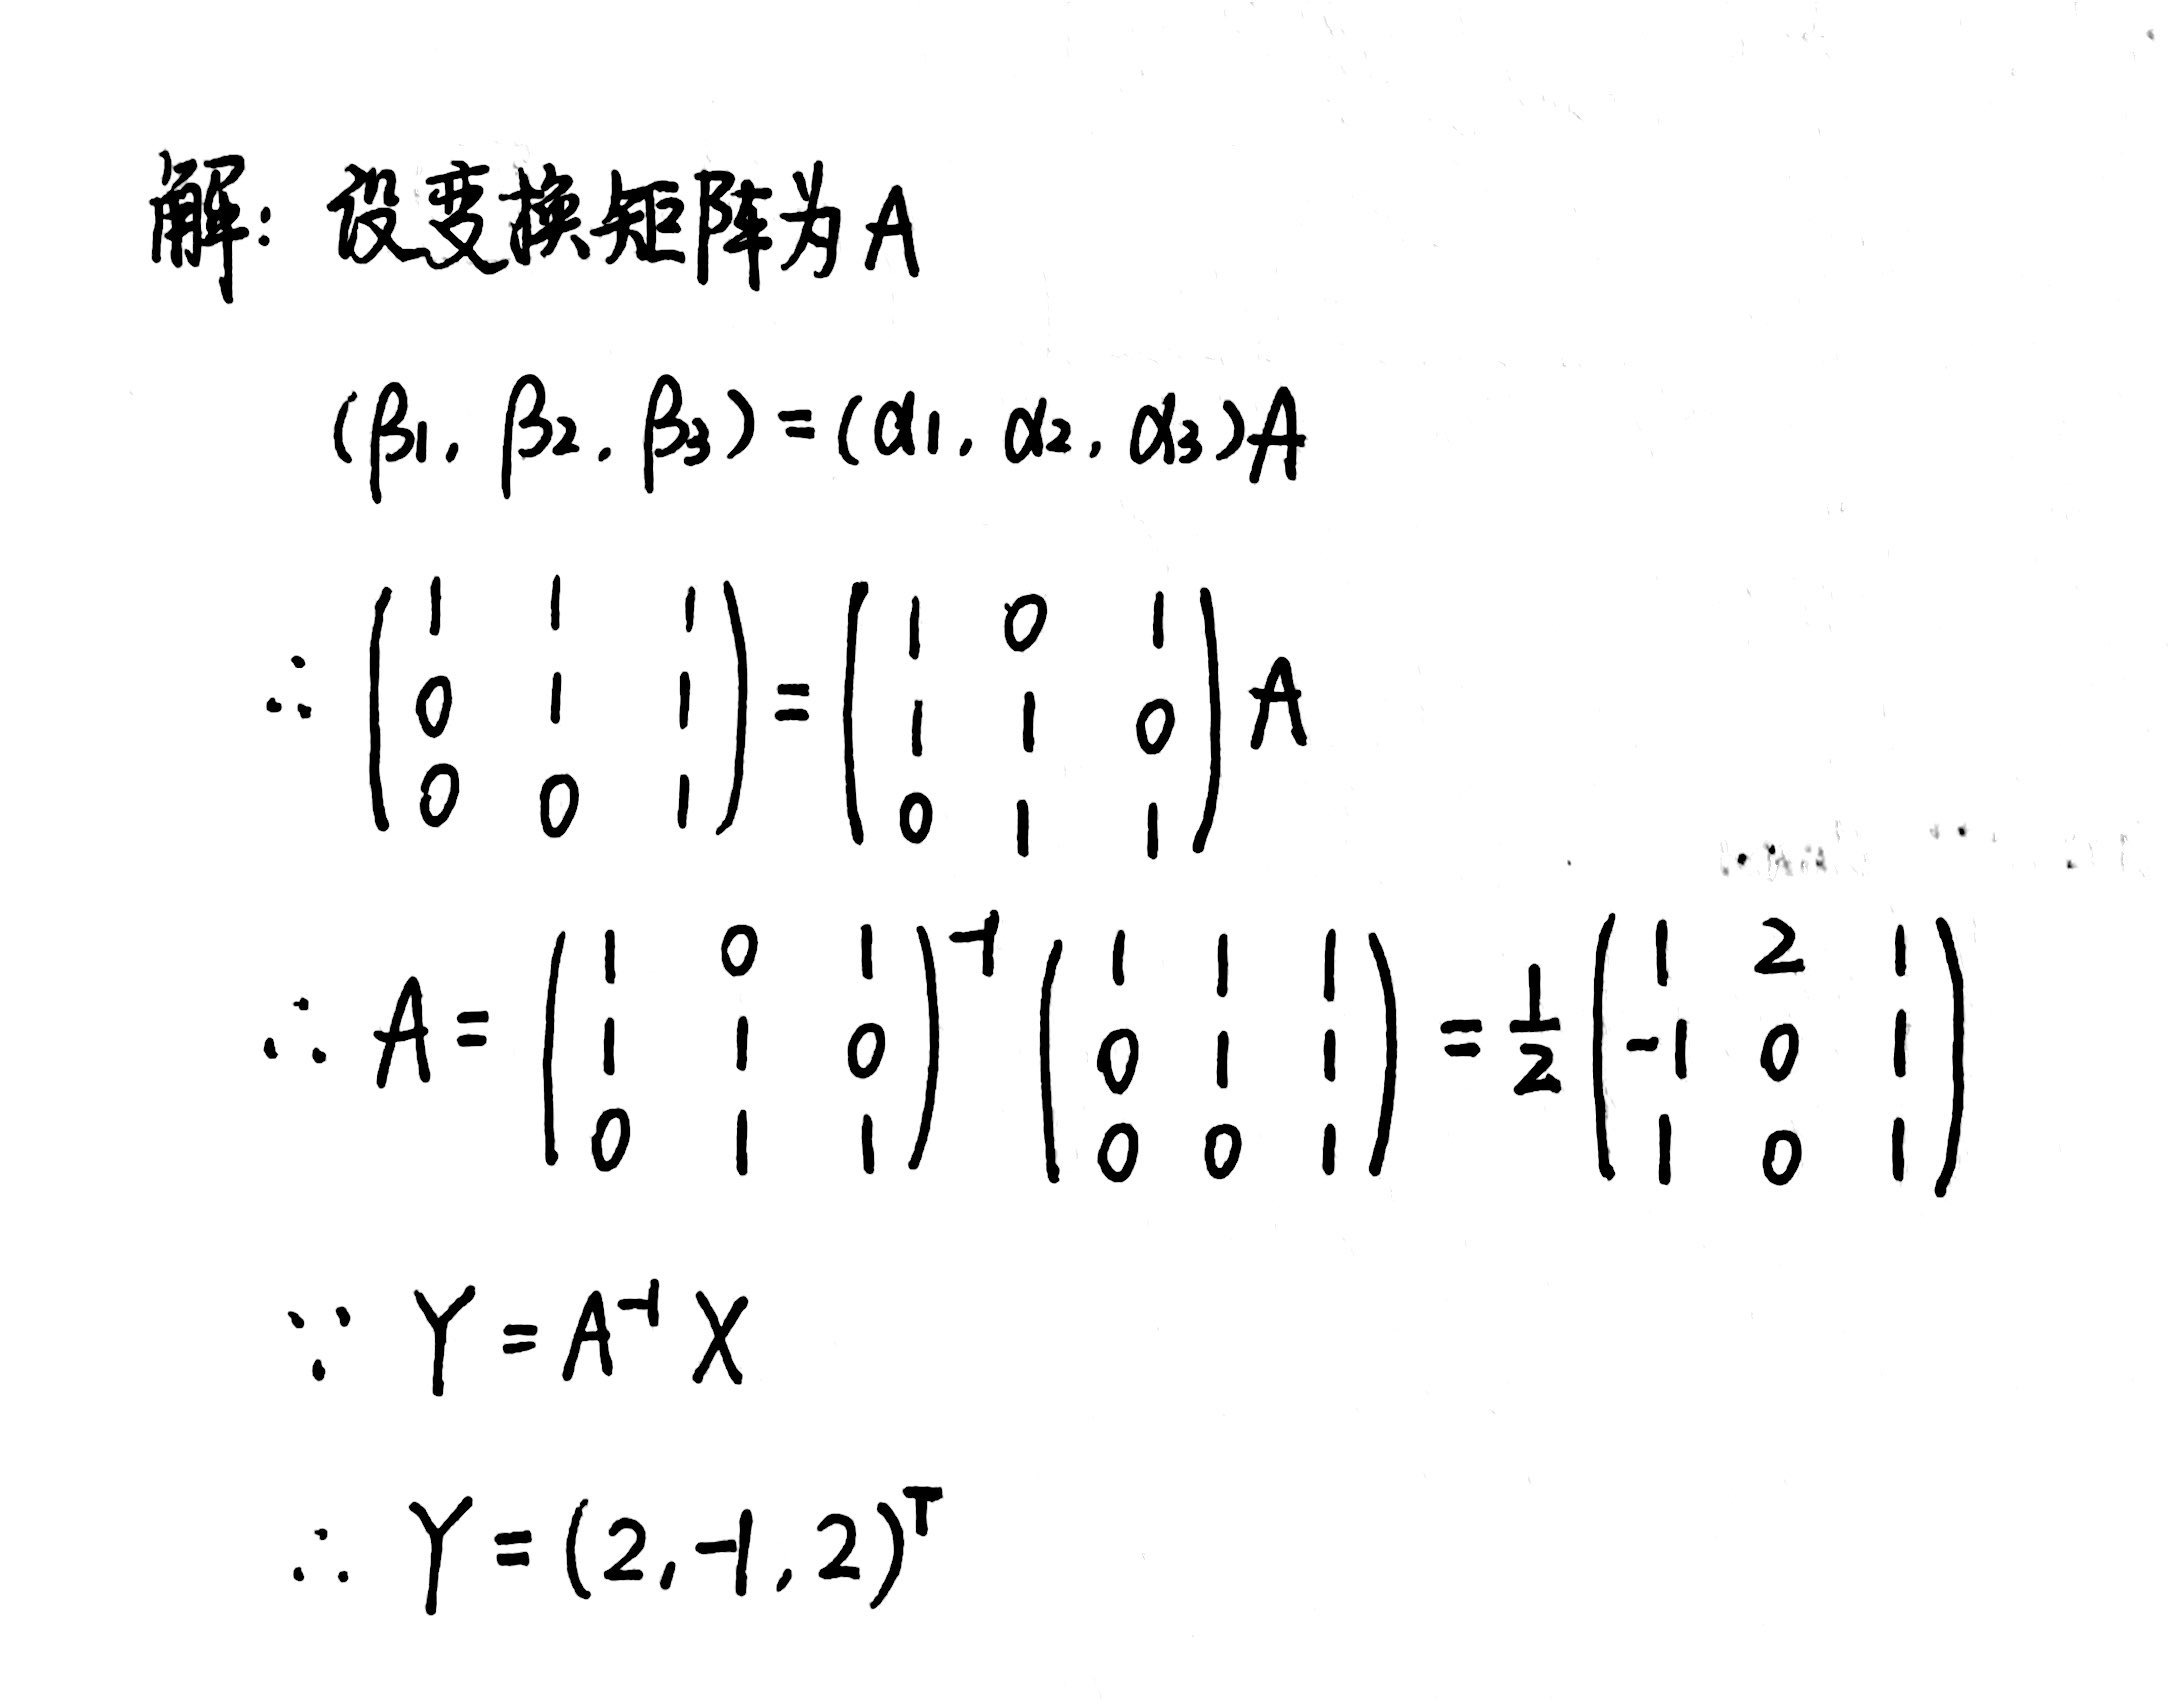 解: 设变换矩阵为A
(β1, β2, β3) = (α1, α2, α3)A
∴ (1 1 1; 0 1 1; 0 0 1) = (1 0 1; 1 1 0; 0 1 1) A
∴ A = (1 0 1; 1 1 0; 0 1 1)⁻¹ (1 1 1; 0 1 1; 0 0 1) = 1/2 (1 2 1; -1 0 1; 1 0 1)
∵ Y = A⁻¹X
∴ Y = (2, -1, 2)ᵀ